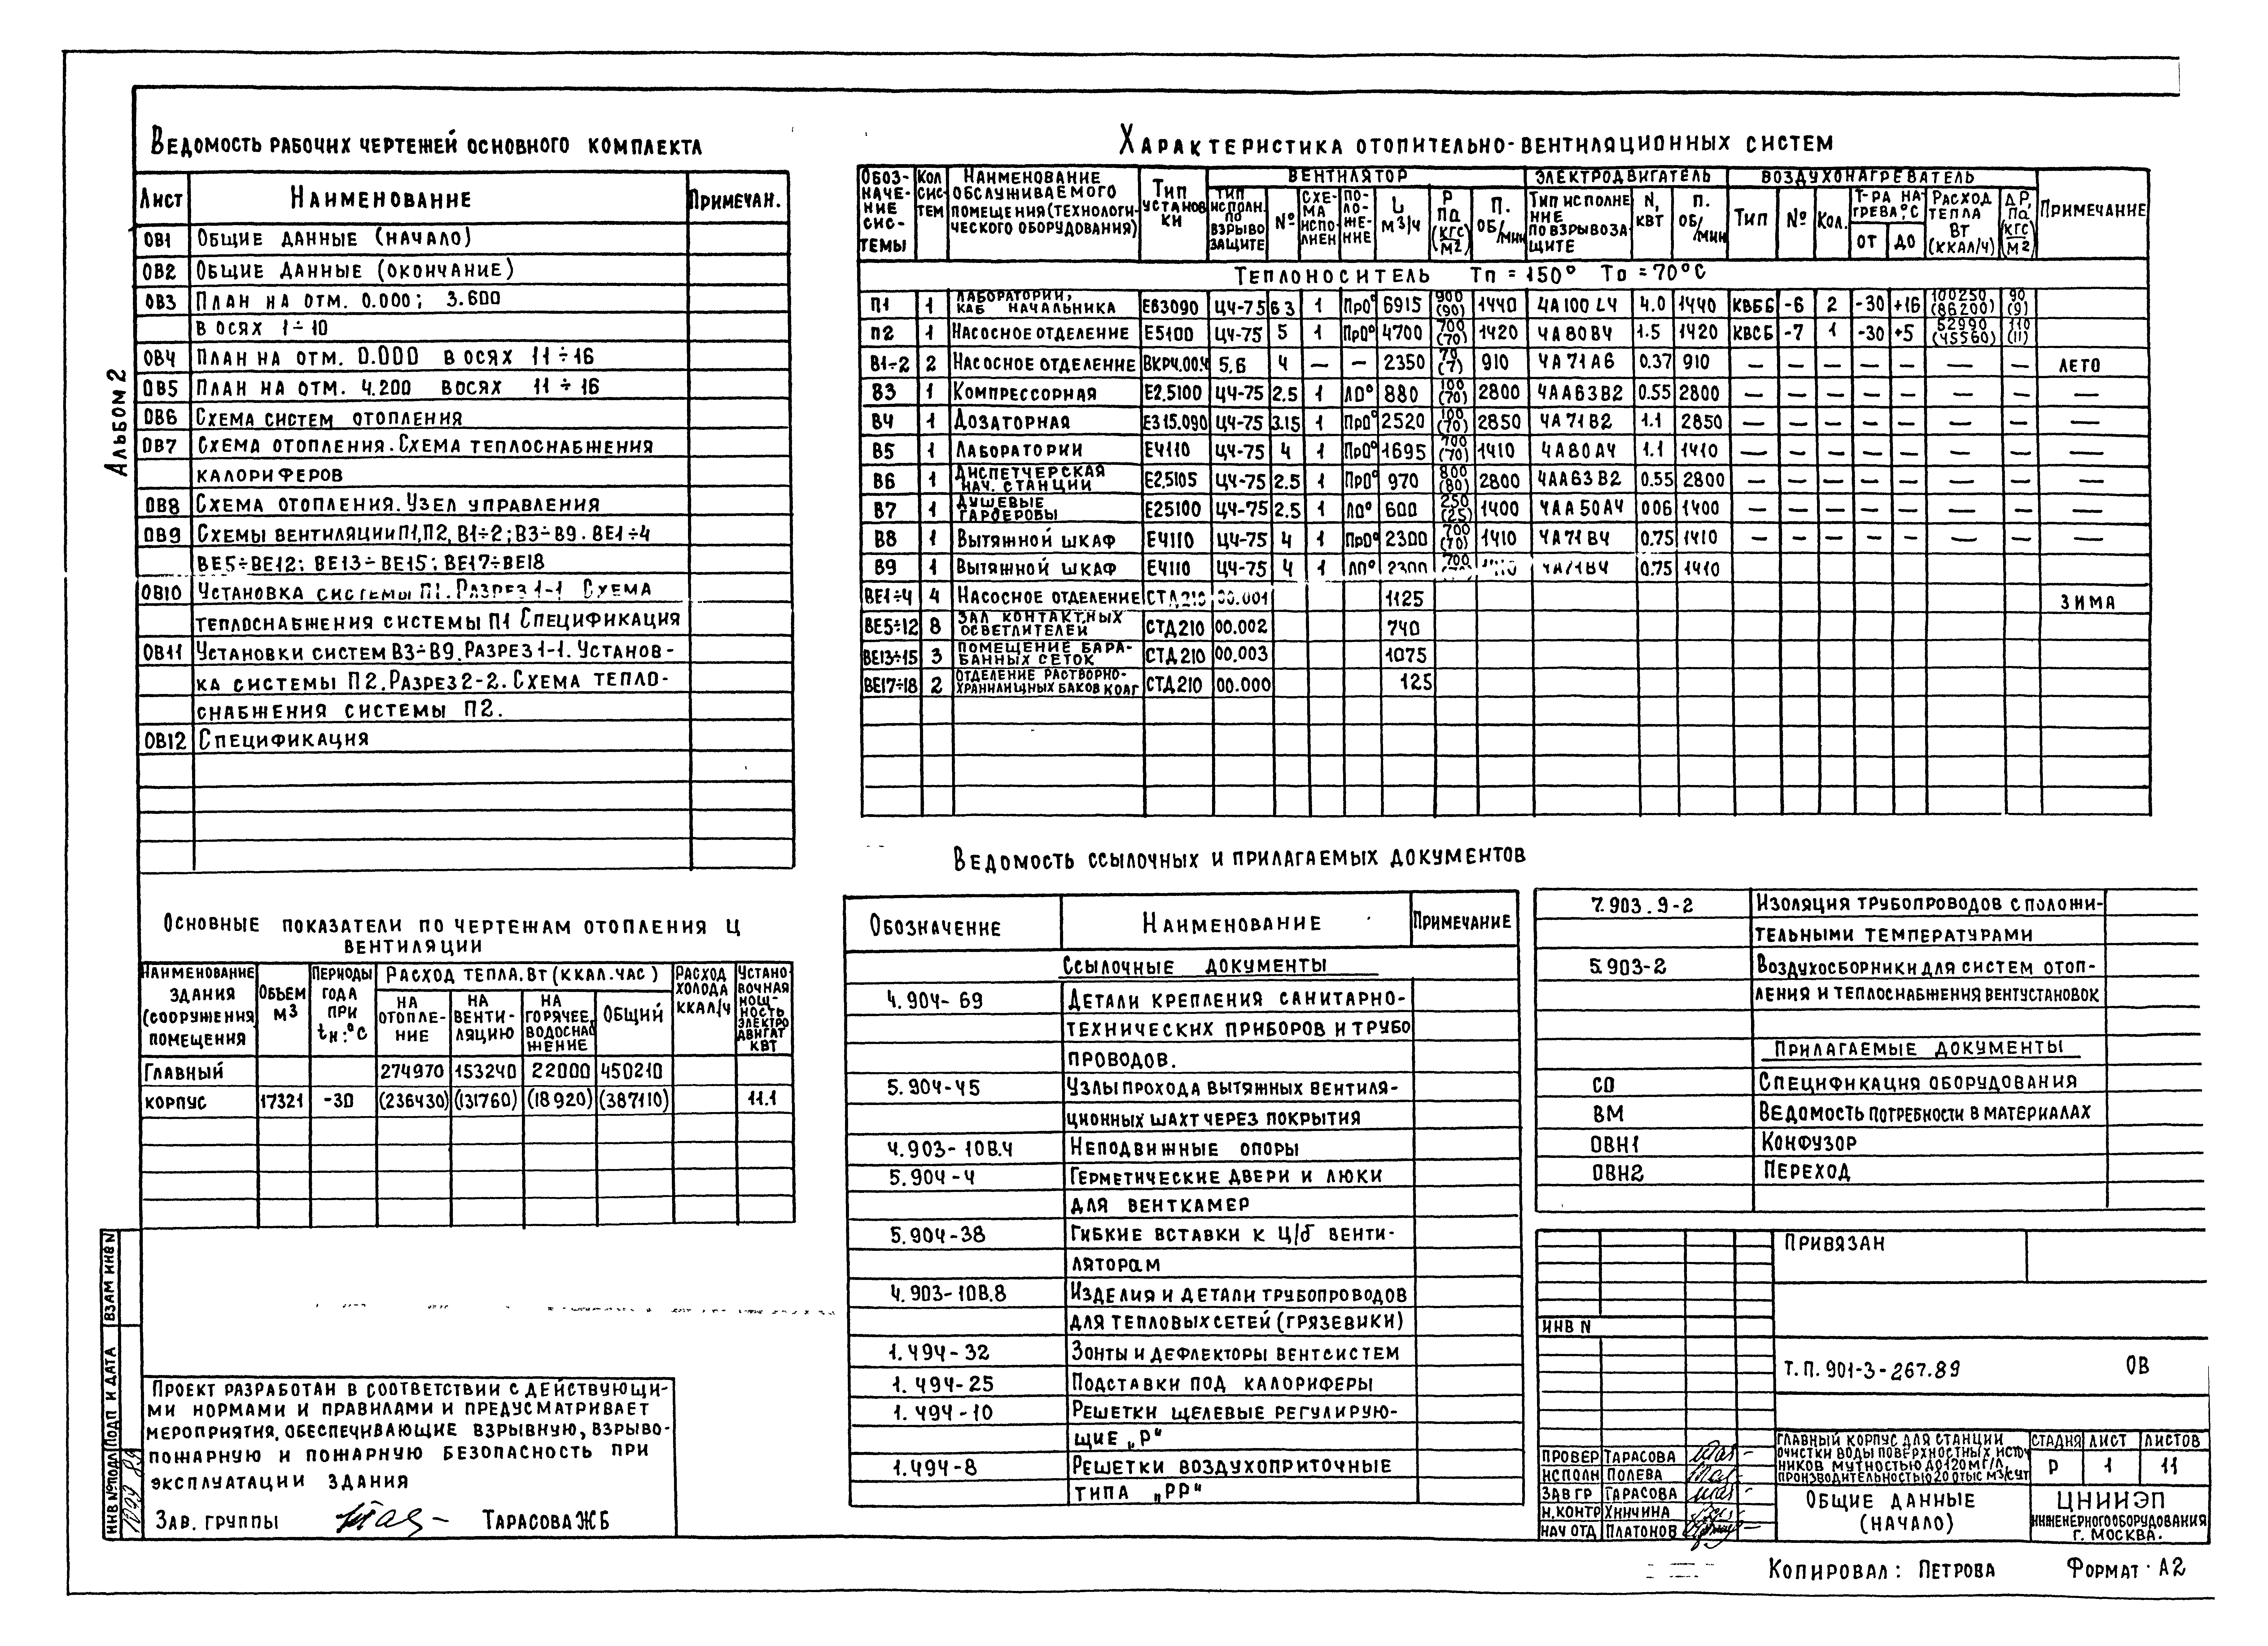 Альбом 2
Ведомость рабочих чертежей основного комплекта
Лист Наименование Примечан.
ОВ1 Общие данные (начало)
ОВ2 Общие данные (окончание)
ОВ3 План на отм. 0.000; 3.600
в осях 1÷10
ОВ4 План на отм. 0.000 в осях 11÷16
ОВ5 План на отм. 4.200 в осях 11÷16
ОВ6 Схема систем отопления
ОВ7 Схема отопления. Схема теплоснабжения
калориферов
ОВ8 Схема отопления. Узел управления
ОВ9 Схемы вентиляции П1, П2, В1÷2; В3÷В9. ВЕ1÷4
ВЕ5÷ВЕ12; ВЕ13÷ВЕ15; ВЕ17÷ВЕ18
ОВ10 Установка системы П1. Разрез 1-1 Схема
теплоснабжения системы П1 Спецификация
ОВ11 Установки систем В3÷В9. Разрез 1-1. Установ-
ка системы П2. Разрез 2-2. Схема тепло-
снабжения системы П2.
ОВ12 Спецификация
Характеристика отопительно-вентиляционных систем
Обозначение системы
Кол систем
Наименование обслуживаемого помещения (технологического оборудования)
Тип установки
Вентилятор
Тип исполн. по взрывозащите
№
Схема исполнен
Положение
L м3/ч
Р Па (кгс/м2)
П. об/мин
Электродвигатель
Тип исполнение по взрывозащите
N, кВт
П. об/мин
Воздухонагреватель
Тип
№
Кол.
Т-ра нагрева, °С
от до
Расход тепла Вт (ккал/ч)
ΔР, Па (кгс/м2)
Примечание
Теплоноситель Тп = 150° То = 70°С
П1 1 Лаборатории, каб начальника Е63090 Ц4-75 6 3 1 Пр0° 6915 900 (90) 1440 4А100L4 4.0 1440 КВББ -6 2 -30 +16 100250 (86200) 90 (9)
П2 1 Насосное отделение Е5100 Ц4-75 5 1 Пр0° 4700 700 (70) 1420 4А80В4 1.5 1420 КВСБ -7 1 -30 +5 52990 (45560) 110 (11)
В1÷2 2 Насосное отделение ВКР4.00.4 5.6 4 — — 2350 70 (7) 910 4А71А6 0.37 910 — — — — — — — лето
В3 1 Компрессорная Е2.5100 Ц4-75 2.5 1 Л0° 880 100 (70) 2800 4АА63В2 0.55 2800 — — — — — — — —
В4 1 Дозаторная Е3.15.090 Ц4-75 3.15 1 Пр0° 2520 100 (70) 2850 4А71В2 1.1 2850 — — — — — — — —
В5 1 Лаборатории Е4110 Ц4-75 4 1 Пр0° 1695 700 (70) 1410 4А80А4 1.1 1410 — — — — — — — —
В6 1 Диспетчерская нач. станции Е2.5105 Ц4-75 2.5 1 Пр0° 970 800 (80) 2800 4АА63В2 0.55 2800 — — — — — — — —
В7 1 Душевые гардеробы Е25100 Ц4-75 2.5 1 Л0° 600 250 (25) 1400 4АА50А4 006 1400 — — — — — — — —
В8 1 Вытяжной шкаф Е4110 Ц4-75 4 1 Пр0° 2300 700 (70) 1410 4А71В4 0.75 1410 — — — — — — — —
В9 1 Вытяжной шкаф Е4110 Ц4-75 4 1 Л0° 2300 700 4А71В4 0.75 1410
ВЕ1÷4 4 Насосное отделение СТД210 00.001 1125 зима
ВЕ5÷12 8 Зал контактных осветлителей СТД210 00.002 740
ВЕ13÷15 3 Помещение барабанных сеток СТД210 00.003 1075
ВЕ17÷18 2 Отделение растворно-хранилищных баков коаг СТД210 00.000 125
Основные показатели по чертежам отопления ц
вентиляции
Наименование здания (сооружения помещения
Объем м3
Периоды года при tн: °С
Расход тепла. Вт (ккал.час)
на отопление
на вентиляцию
на горячее водоснабжение
общий
Расход холода ккал/ч
Установочная мощность электродвигат кВт
Главный 274970 153240 22000 450210
корпус 17321 -30 (236430) (131760) (18920) (387110) 11.1
Ведомость ссылочных и прилагаемых документов
Обозначение Наименование Примечание
Ссылочные документы
4.904-69 Детали крепления санитарно-
технических приборов и трубо
проводов.
5.904-45 Узлы прохода вытяжных вентиля-
ционных шахт через покрытия
4.903-10В.4 Неподвижные опоры
5.904-4 Герметические двери и люки
для венткамер
5.904-38 Гибкие вставки к ц/б венти-
ляторам
4.903-10В.8 Изделия и детали трубопроводов
для тепловых сетей (грязевики)
1.494-32 Зонты и дефлекторы вентсистем
1.494-25 Подставки под калориферы
1.494-10 Решетки щелевые регулирую-
щие „Р"
1.494-8 Решетки воздухоприточные
типа „РР"
7.903.9-2 Изоляция трубопроводов с положи-
тельными температурами
5.903-2 Воздухосборники для систем отоп-
ления и теплоснабжения вентустановок
Прилагаемые документы
СО Спецификация оборудования
ВМ Ведомость потребности в материалах
ОВН1 Конфузор
ОВН2 Переход
Проект разработан в соответствии с действующи-
ми нормами и правилами и предусматривает
мероприятия, обеспечивающие взрывную, взрыво-
пожарную и пожарную безопасность при
эксплуатации здания
Зав. группы Тарасова ЖБ
Взам инв N
Подп и дата
Инв №подл
Привязан
Инв N
Т.П. 901-3-267.89 ОВ
Провер Тарасова
Исполн Полева
Зав гр Тарасова
Н.контр Хинчина
Нач отд Платонов
Главный корпус для станции
очистки воды поверхностных источ
ников мутностью до 120 мг/л
производительностью 20.0 тыс м3/сут
Стадия Лист Листов
Р 1 11
Общие данные
(начало)
ЦНИИЭП
инженерного оборудования
г. Москва.
Копировал: Петрова Формат·А2